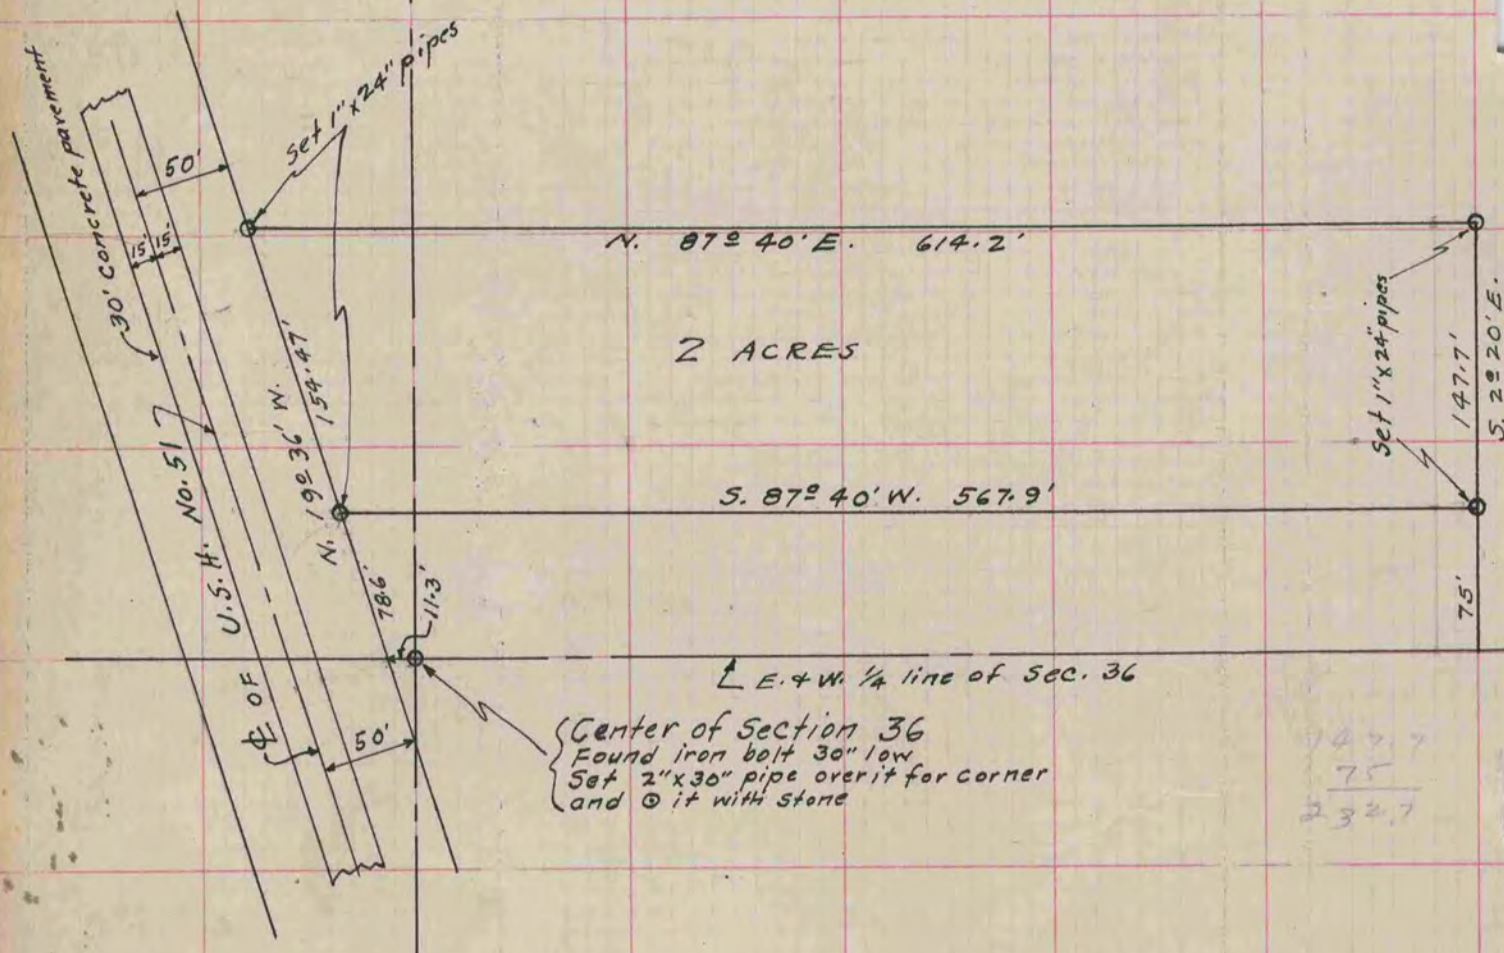 30' Concrete pavement
50'
Set 1" x 24" pipes
15' 15'
N. 87º 40' E. 614.2'
2 ACRES
Set 1" x 24" pipes
147.7'
S. 2º 20' E.
N. 19º 36' W. 154.47'
℄ OF U.S.H. No. 51
S. 87º 40' W. 567.9'
78.6'
11.3'
75'
E. & W. ¼ line of Sec. 36
50'
Center of Section 36
Found iron bolt 30" low
Set 2" x 30" pipe over it for corner
and ⊙ it with stone
147.7
75
232.7